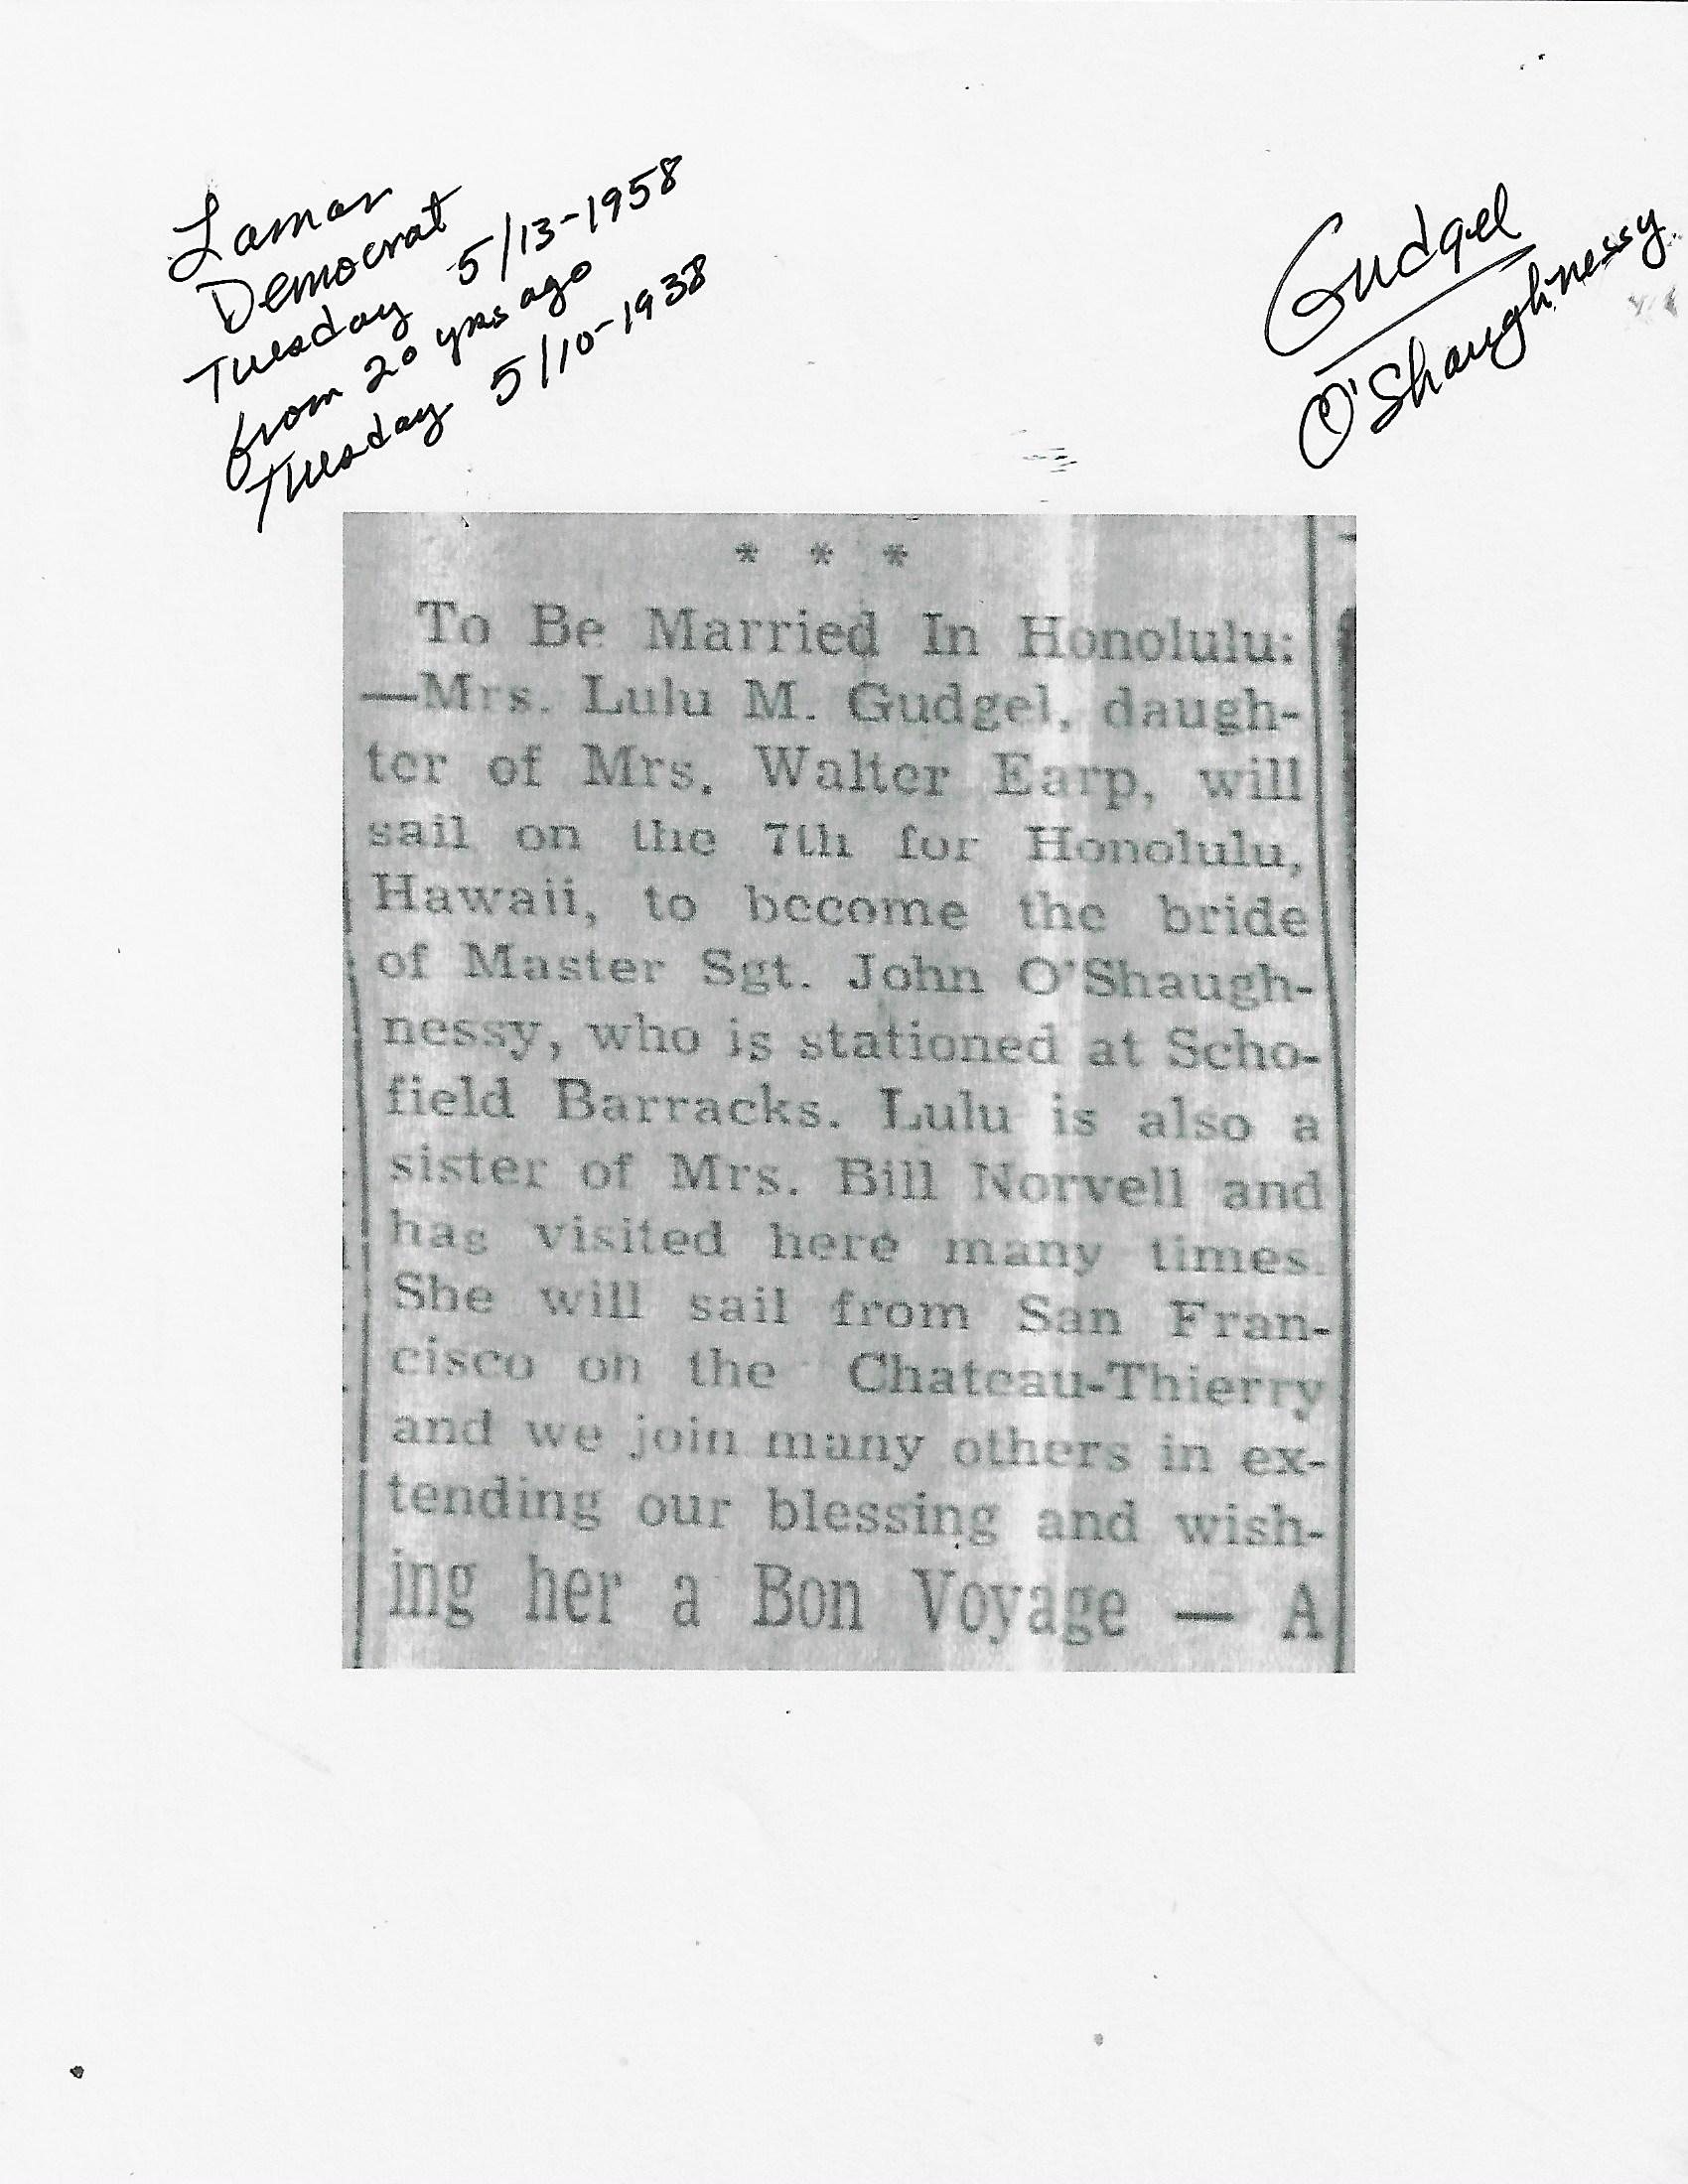 Lamar
Democrat
Tuesday 5/13-1958
from 20 yrs ago
Tuesday 5/10-1938
Gudgel
O'Shaughnessy
* * *
To Be Married In Honolulu:
—Mrs. Lulu M. Gudgel, daugh-
ter of Mrs. Walter Earp, will
sail on the 7th for Honolulu,
Hawaii, to become the bride
of Master Sgt. John O'Shaugh-
nessy, who is stationed at Scho-
field Barracks. Lulu is also a
sister of Mrs. Bill Norvell and
has visited here many times.
She will sail from San Fran-
cisco on the Chateau-Thierry
and we join many others in ex-
tending our blessing and wish-
ing her a Bon Voyage — A